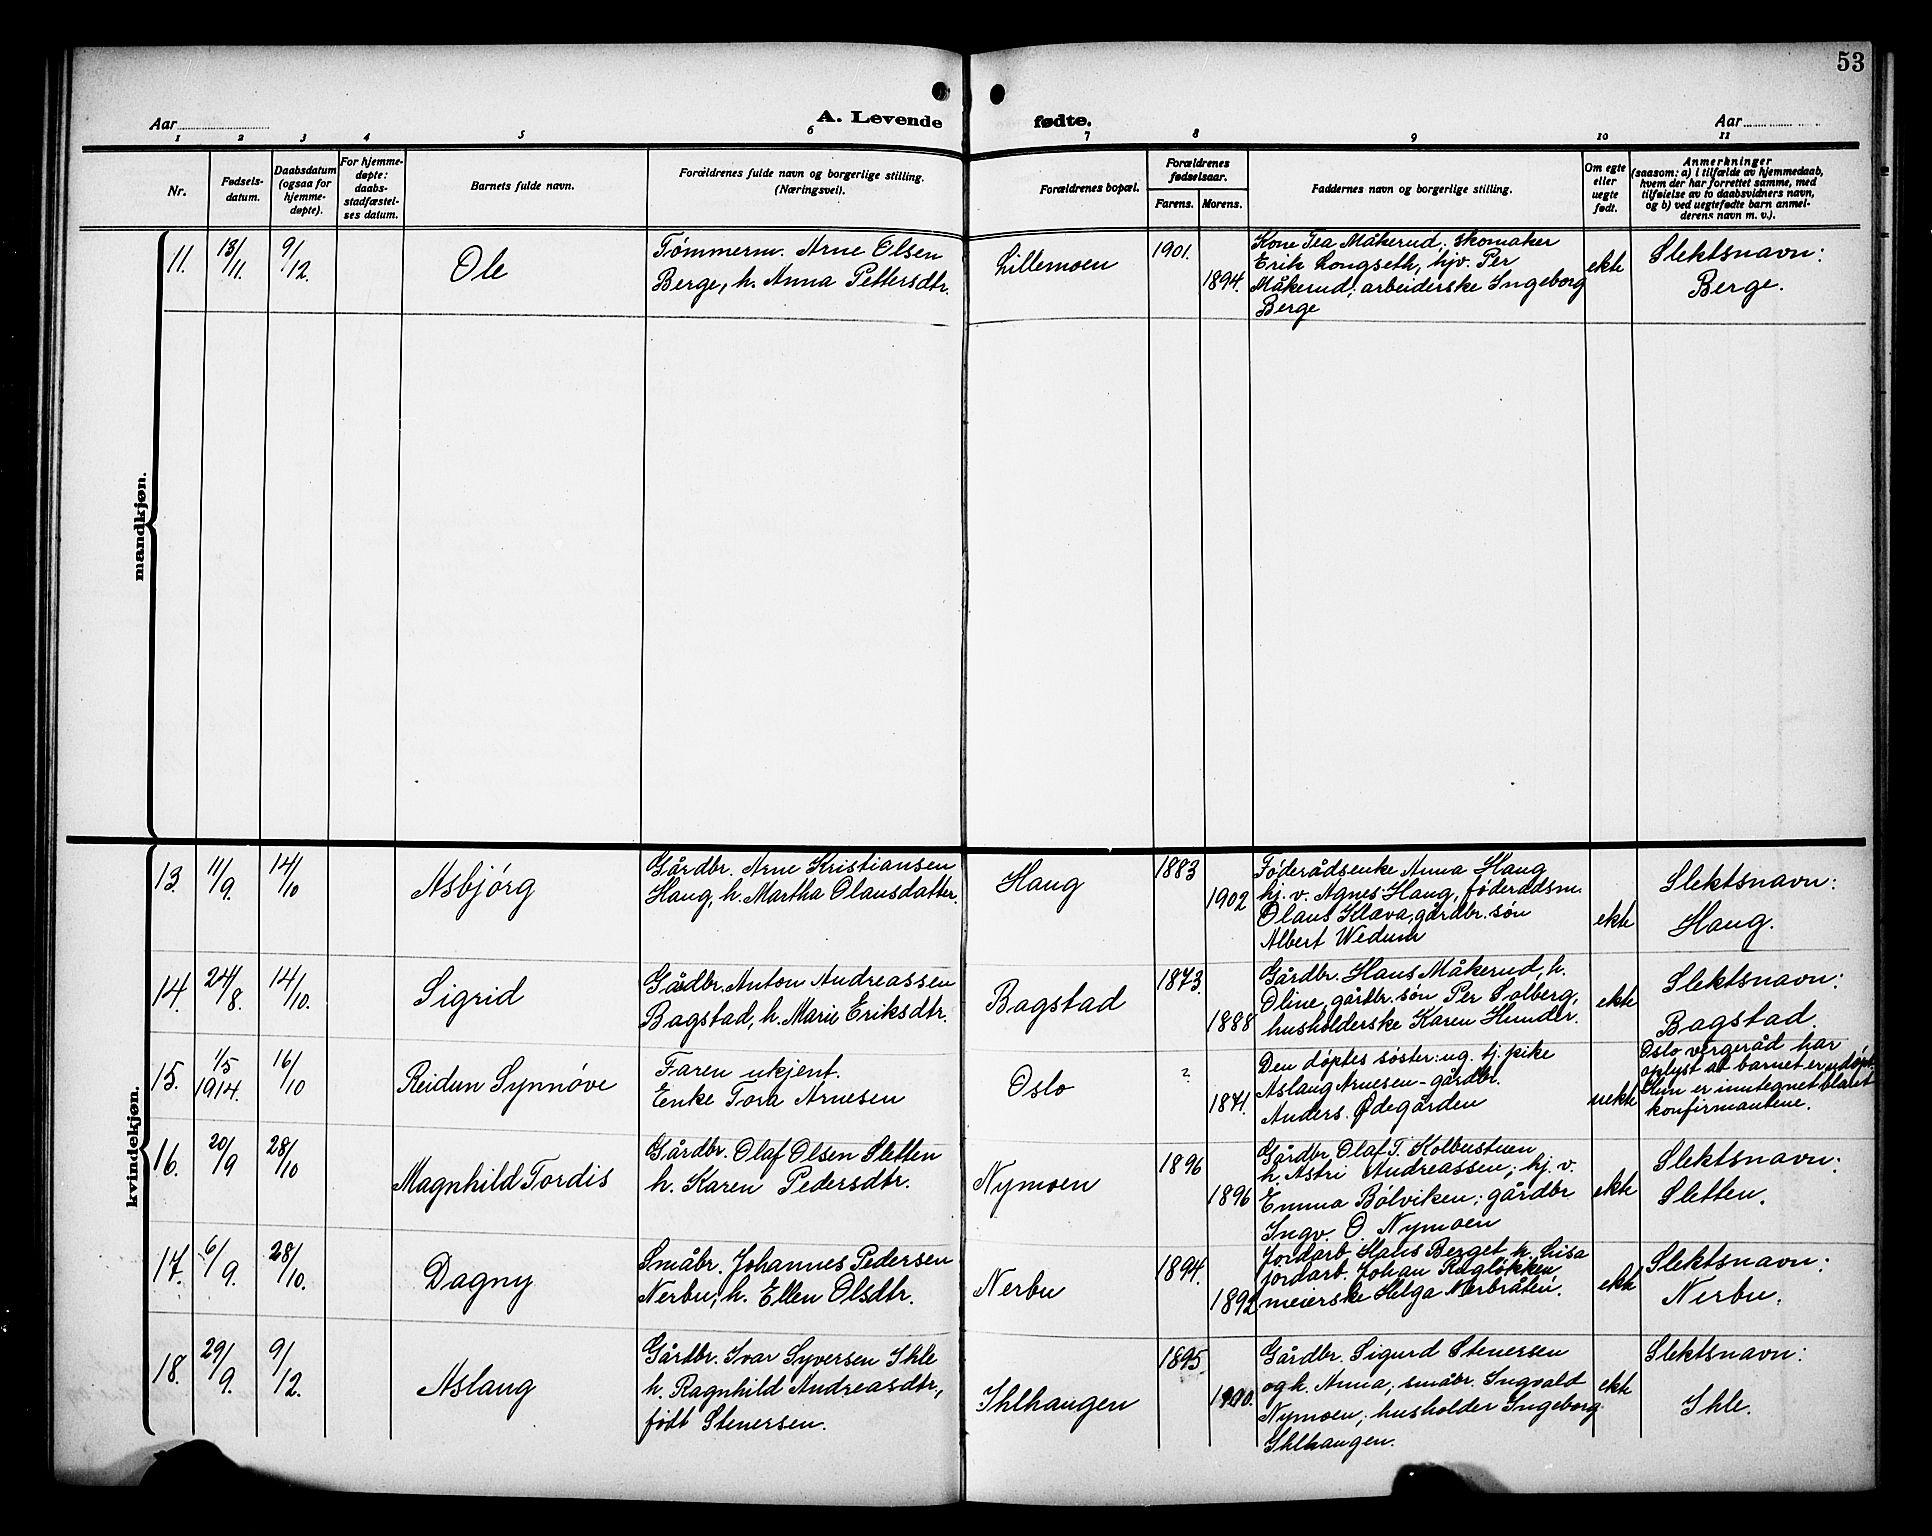 53
Aar
A. Levende
fødte.
Aar
1 2 3 4 5 6 7 8 9 10 11
Nr.
Fødsels-
datum.
Daabsdatum
(ogsaa for
hjemme-
døpte).
For hjemme-
døpte:
daabs-
stadfæstel-
ses datum.
Barnets fulde navn.
Forældrenes fulde navn og borgerlige stilling.
(Næringsvei).
Forældrenes bopæl.
Forældrenes
fødselsaar.
Farens.
Morens.
Faddernes navn og borgerlige stilling.
Om egte
eller
uegte
født.
Anmerkninger
(saasom: a) i tilfælde av hjemmedaab,
hvem der har forrettet samme, med
tilføielse av to daabsvidners navn,
og b) ved uegtefødte barn anmel-
derens navn m. v.).
mandkjøn.
11.
13/11.
9/12.
Ole
Tømmerm. Arne Olsen
Berge, h. Anna Pettersdtr.
Lillemoen
1901.
1894.
Kone Tea Måkerud; skomaker
Erik Longseth, hjv. Per
Måkerud; arbeiderske Ingeborg
Berge
ekte
Slektsnavn:
Berge.
kvindekjøn.
13.
11/9.
14/10
Asbjörg
Gårdbr. Arne Kristiansen
Haug, h. Martha Olausdatter.
Haug
1883
1902
Føderådsenke Anna Haug
hj. v. Agnes Haug, föderådsm.
Olaus Klæva, gårdbr. søn
Albert Wedum
ekte
Slektsnavn:
Haug.
14.
24/8.
14/10.
Sigrid
Gårdbr. Anton Andreassen
Bagstad, h. Marie Eriksdtr.
Bagstad
1873.
1888
Gårdbr. Hans Måkerud, h.
Oline, gårdbr. søn Per Solberg,
husholderske Karen Hunder.
ekte
Slektsnavn:
Bagstad.
15.
1/5
1914.
16/10
Reidun Synnøve
Faren ukjent.
Enke Tora Arnesen
Oslo
?
1871.
Den døptes søster: ug. tj. pike
Aslaug Arnesen - gårdbr.
Anders Ødegården
uekte
Oslo vergeråd har
oplyst at barnet er udöpt.
Hun er inntegnet blant
konfirmantene.
16.
20/9
28/10
Magnhild Tordis
Gårdbr. Olaf Olsen Sletten
h. Karen Pedersdtr.
Nymoen
1896
1896
Gårdbr. Olaf T. Kolbustuen
h. Astri Andreassen; hj. v.
Emma Bølviken; gårdbr
Ingv. O. Nymoen
ekte
Slektsnavn:
Sletten.
17.
6/9.
28/10.
Dagny
Småbr. Johannes Pedersen
Nerbu, h. Ellen Olsdtr.
Nerbu
1894.
1892
Jordarb. Hans Berget, h. Lisa
jordarb. Johan Ragløkken
meierske Helga Nerbråten.
ekte
Slektsnavn:
Nerbu.
18.
29/9.
9/12.
Aslaug
Gårdbr. Ivar Syversen Ihle
h. Ragnhild Andreasdtr,
født Stenersen.
Ihlhaugen
1895
1900.
Gårdbr. Sigurd Stenersen
og h. Anna, småbr. Ingvald
Nymoen, husholder Ingeborg
Ihlhaugen.
ekte
Slektsnavn:
Ihle.